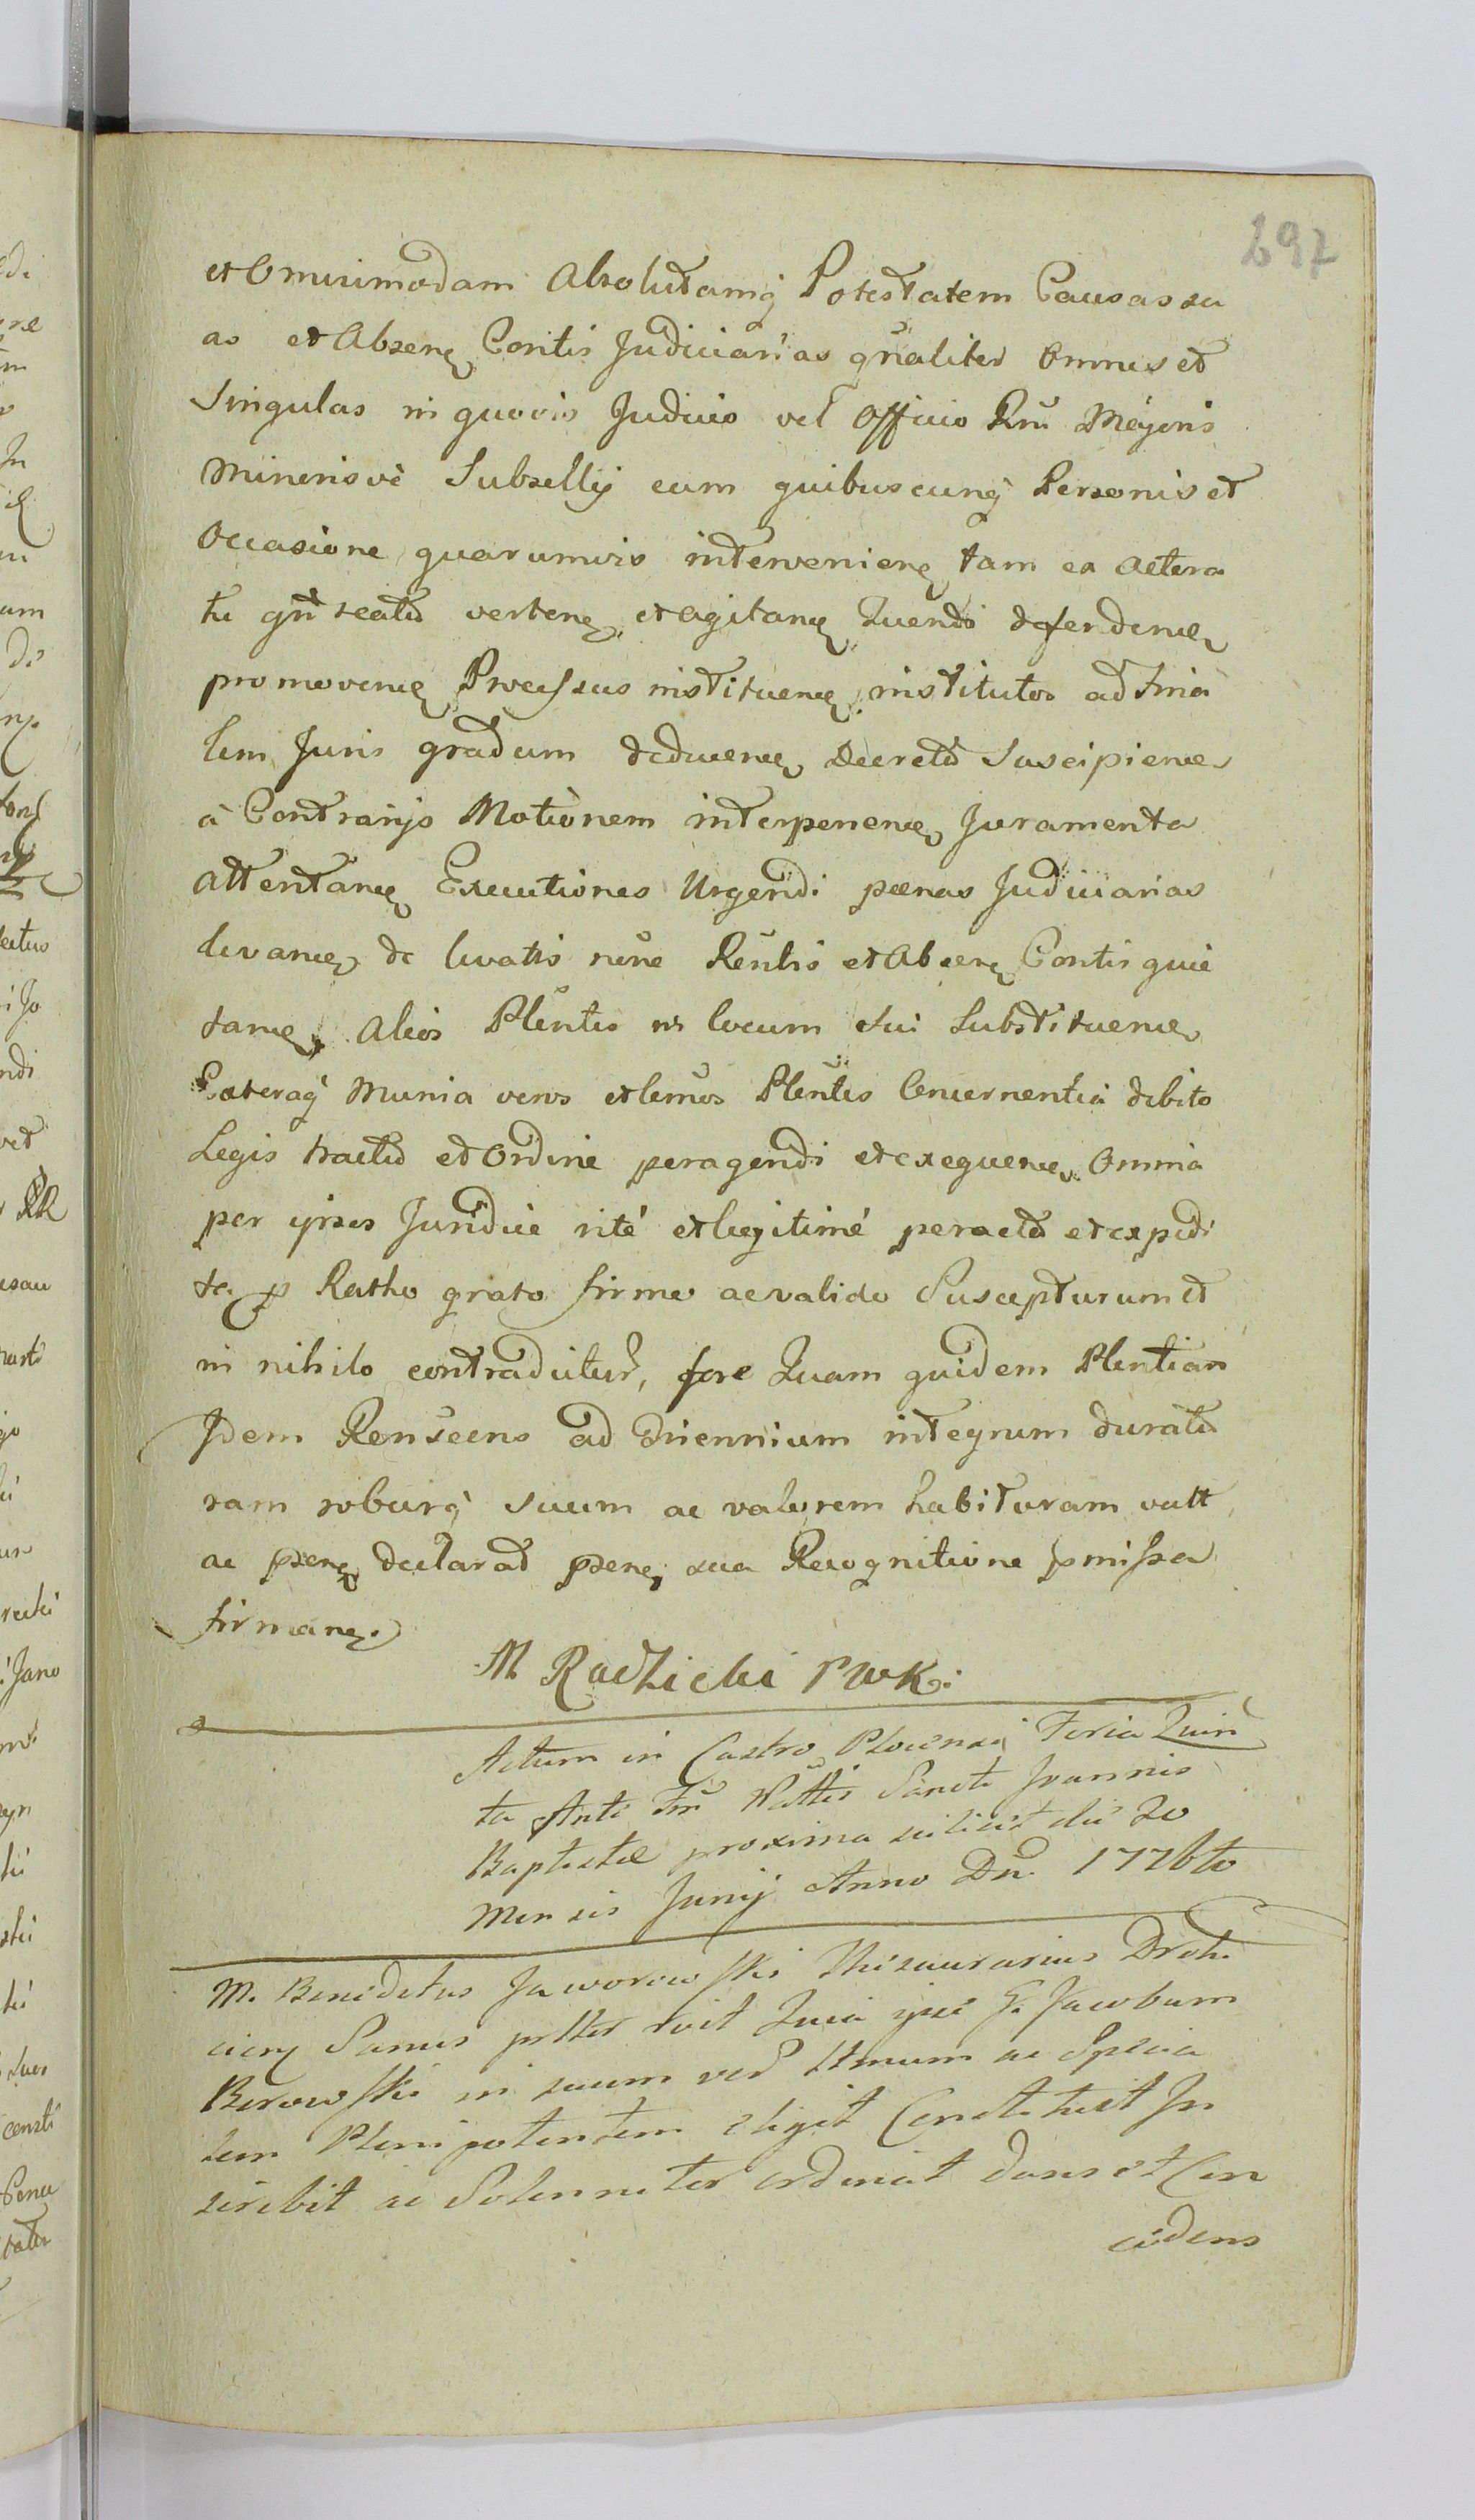 697
et Omnimodam Absolutamq Potestatem Causas su
as et Absen Contis Judiciarias gnaliter omnes et
Singulas in quovis Judicio vel Officio Rni Majoris
Minorisvè Subsellij cum quibuscunq Personis et
Occasione quarumvis intervenien tam ex Actora
tu qm reatu verten et agitan Tuendi defendendi
promoven Processus instituen institutos ad Fina
lem Juris gradum deducen Decreta Suscipien
à Contrarijs Motionem interponen Juramenta
attentan Executiones Urgendi pænas Judiciarias
levan de levatis nõne Rentis et Absen Contis quie
tan, Alios Plentes in locum sui Substituen
Cæteraq Munia veros et lemos Plentes Concernentia debito
Legis tractu et Ordine peragendi et exequen Omnia
per ipsos Juridice rité et legitimé peracta et expedi
ta p Ratho grato firmo ac valido Suscepturum et
in nihilo contradictur, fore Quam quidem Plentiam
Idem Renscens ad Triennium integrum duratu
ram roburq suum ac valorem habituram vult
ac psen declarat psen sua Recognitione pmissa
firman.
M Radzicki PWK:
Actum in Castro Plocensi Feria Quin
ta Ante Fm Nattis Sancti Joannis
Baptistæ proxima scilicet die 20
Mensis Junij Anno Dni 1776to
M. Benedictus Jaworowski Thesaurarius Drohi
cien Sanus pntter rvit Quia ipse G. Jacobum
Borowski in suum ver ltmum ac Specia
lem Plenipotentem eligit Constituit In
scribit ac Solenniter ordinat dans et Con
cedens